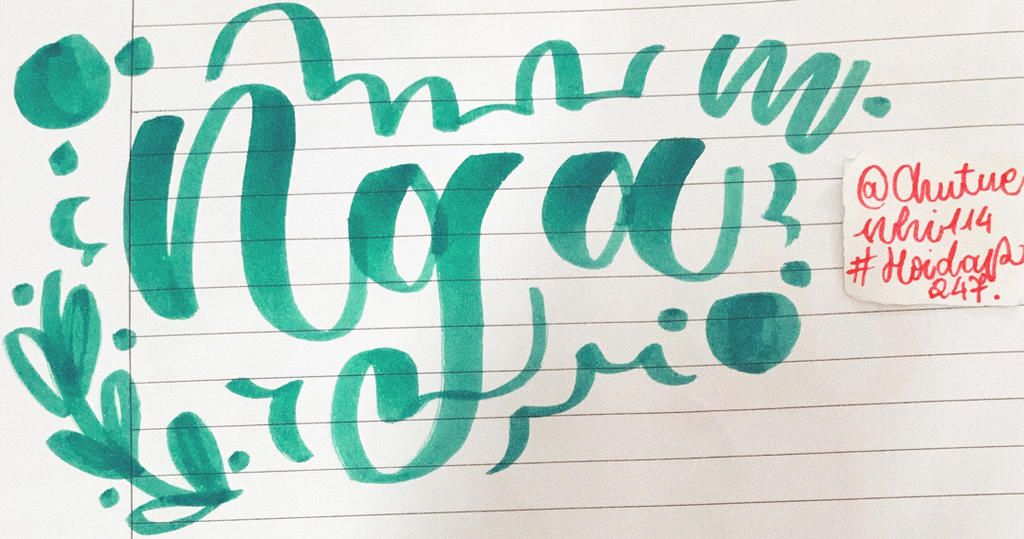 Nga
@Chutue
nhi1114
#Hoidap
247.